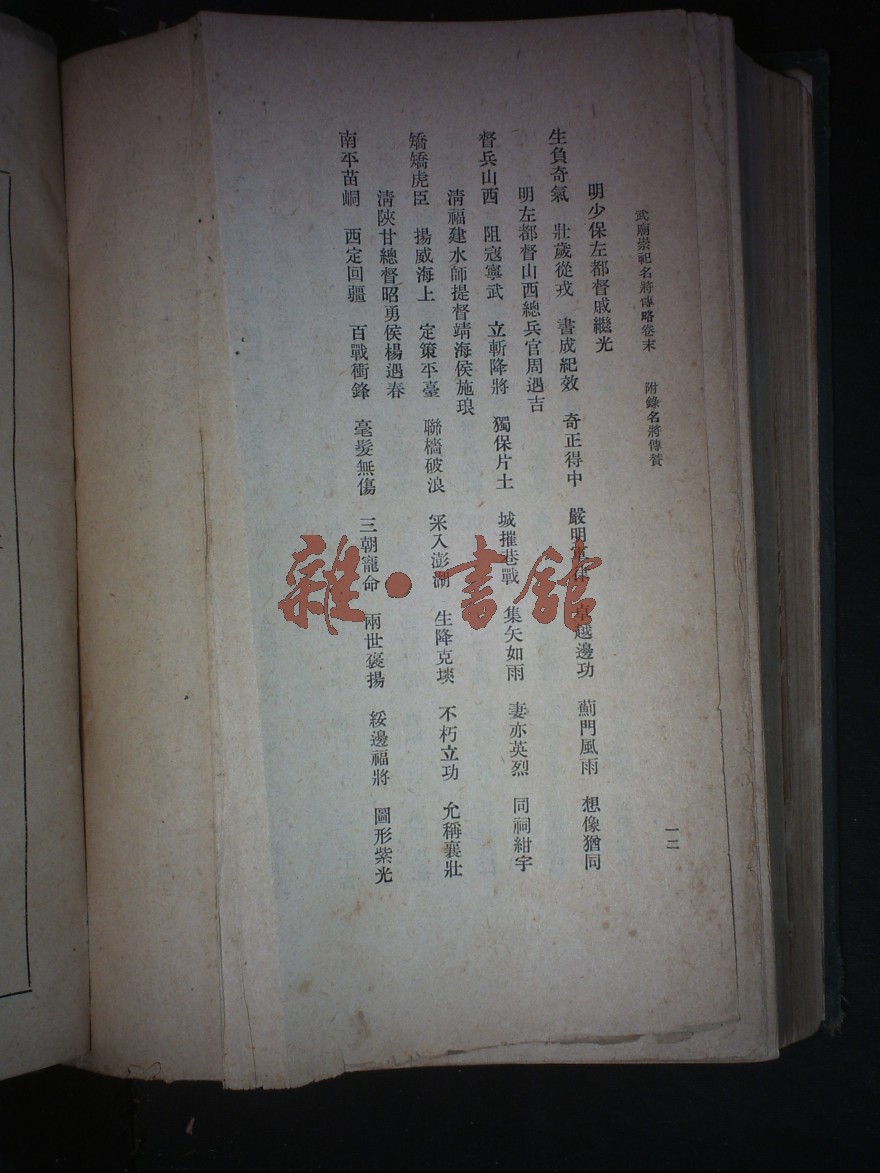 武廟崇祀名將傳略卷末 附錄名將傳贊
明少保左都督戚繼光
生負奇氣 壯歲從戎 書成紀效 奇正得中 嚴明軍律 卓越邊功 薊門風雨 想像猶同
明左都督山西總兵官周遇吉
督兵山西 阻寇寧武 立斬降將 獨保片土 城摧巷戰 集矢如雨 妻亦英烈 同祠紺宇
清福建水師提督靖海侯施琅
矯矯虎臣 揚威海上 定策平臺 聯檣破浪 罙入澎湖 生降克塽 不朽立功 允稱襄壯
清陝甘總督昭勇侯楊遇春
南平苗峒 西定回疆 百戰衝鋒 毫髮無傷 三朝寵命 兩世褒揚 綏邊福將 圖形紫光
一二
雜·書館